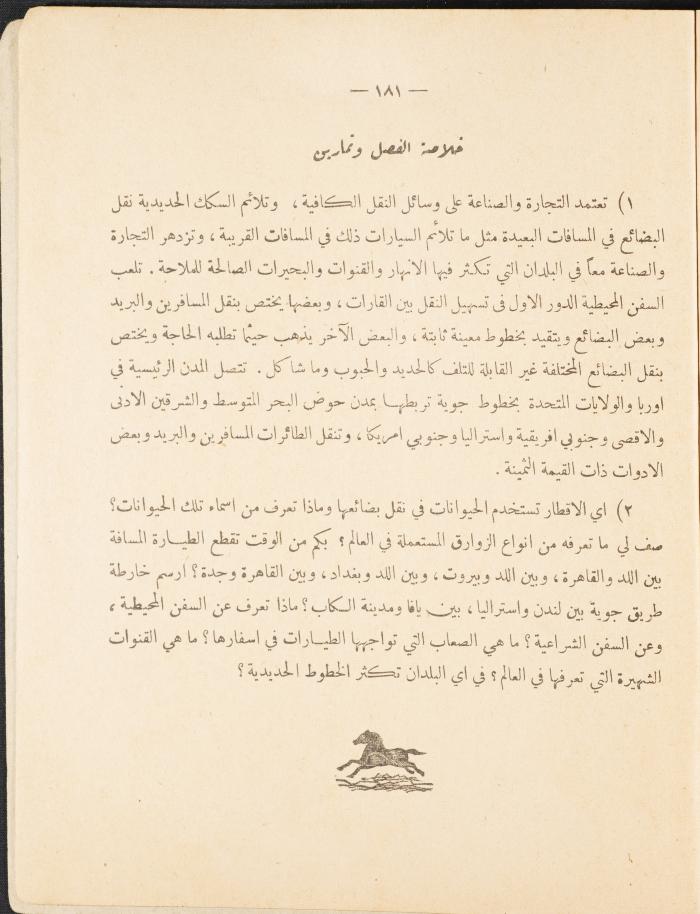 — ١٨١ —
خلاصة الفصل وتمارين
١) تعتمد التجارة والصناعة على وسائل النقل الكافية ، وتلائم السكك الحديدية نقل
البضائع في المسافات البعيدة مثل ما تلائم السيارات ذلك في المسافات القريبة ، وتزدهر التجارة
والصناعة معاً في البلدان التي تكثر فيها الانهار والقنوات والبحيرات الصالحة للملاحة . تلعب
السفن المحيطية الدور الاول في تسهيل النقل بين القارات ، وبعضها يختص بنقل المسافرين والبريد
وبعض البضائع ويتقيد بخطوط معينة ثابتة ، والبعض الآخر يذهب حيثما تطلبه الحاجة ويختص
بنقل البضائع المختلفة غير القابلة للتلف كالحديد والحبوب وما شاكل . تتصل المدن الرئيسية في
اوربا والولايات المتحدة بخطوط جوية تربطها بمدن حوض البحر المتوسط والشرقين الادنى
والاقصى وجنوبي افريقية واستراليا وجنوبي امريكا ، وتنقل الطائرات المسافرين والبريد وبعض
الادوات ذات القيمة الثمينة .
٢) اي الاقطار تستخدم الحيوانات في نقل بضائعها وماذا تعرف من اسماء تلك الحيوانات؟
صف لي ما تعرفه من انواع الزوارق المستعملة في العالم ؟ بكم من الوقت تقطع الطيارة المسافة
بين اللد والقاهرة ، وبين اللد وبيروت ، وبين اللد وبغداد ، وبين القاهرة وجدة ؟ ارسم خارطة
طريق جوية بين لندن واستراليا ، بين يافا ومدينة الكاب ؟ ماذا تعرف عن السفن المحيطية ،
وعن السفن الشراعية ؟ ما هي الصعاب التي تواجهها الطيارات في اسفارها ؟ ما هي القنوات
الشهيرة التي تعرفها في العالم ؟ في اي البلدان تكثر الخطوط الحديدية ؟